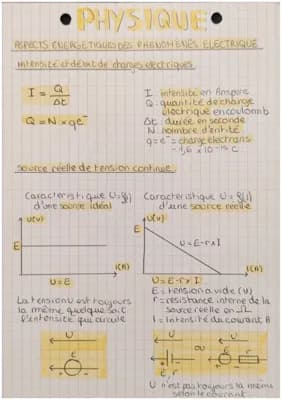 PHYSIQUE
ASPECTS ÉNERGETIQUES DES PHÉNOMÈNES ELECTRIQUE
Intensité et débit de charges electriques
I = Q / Δt
Q = N × qe⁻
I : intensité en Ampère
Q : quantité de charge
électrique en coulomb
Δt : durée en seconde
N : nombre d'entité
qe⁻ = charge électrons
-1,6 × 10⁻¹⁹ C
source réelle de tension continue
Caractéristique U=f(I)
d'une source idéal
U(V)
E
I(A)
U = E
La tension U est toujours
la même, quelque soit
l'intensité qui circule
U
E
Caractéristique U=f(I)
d'une source réelle
U(V)
E
U = E - r × I
I(A)
U = E - r × I
E = tension à vide (V)
r = résistance interne de la
source réelle en Ω
I = Intensité du courant A
U
E r
ou
U
E r
U n'est pas toujours la même
selon le courant